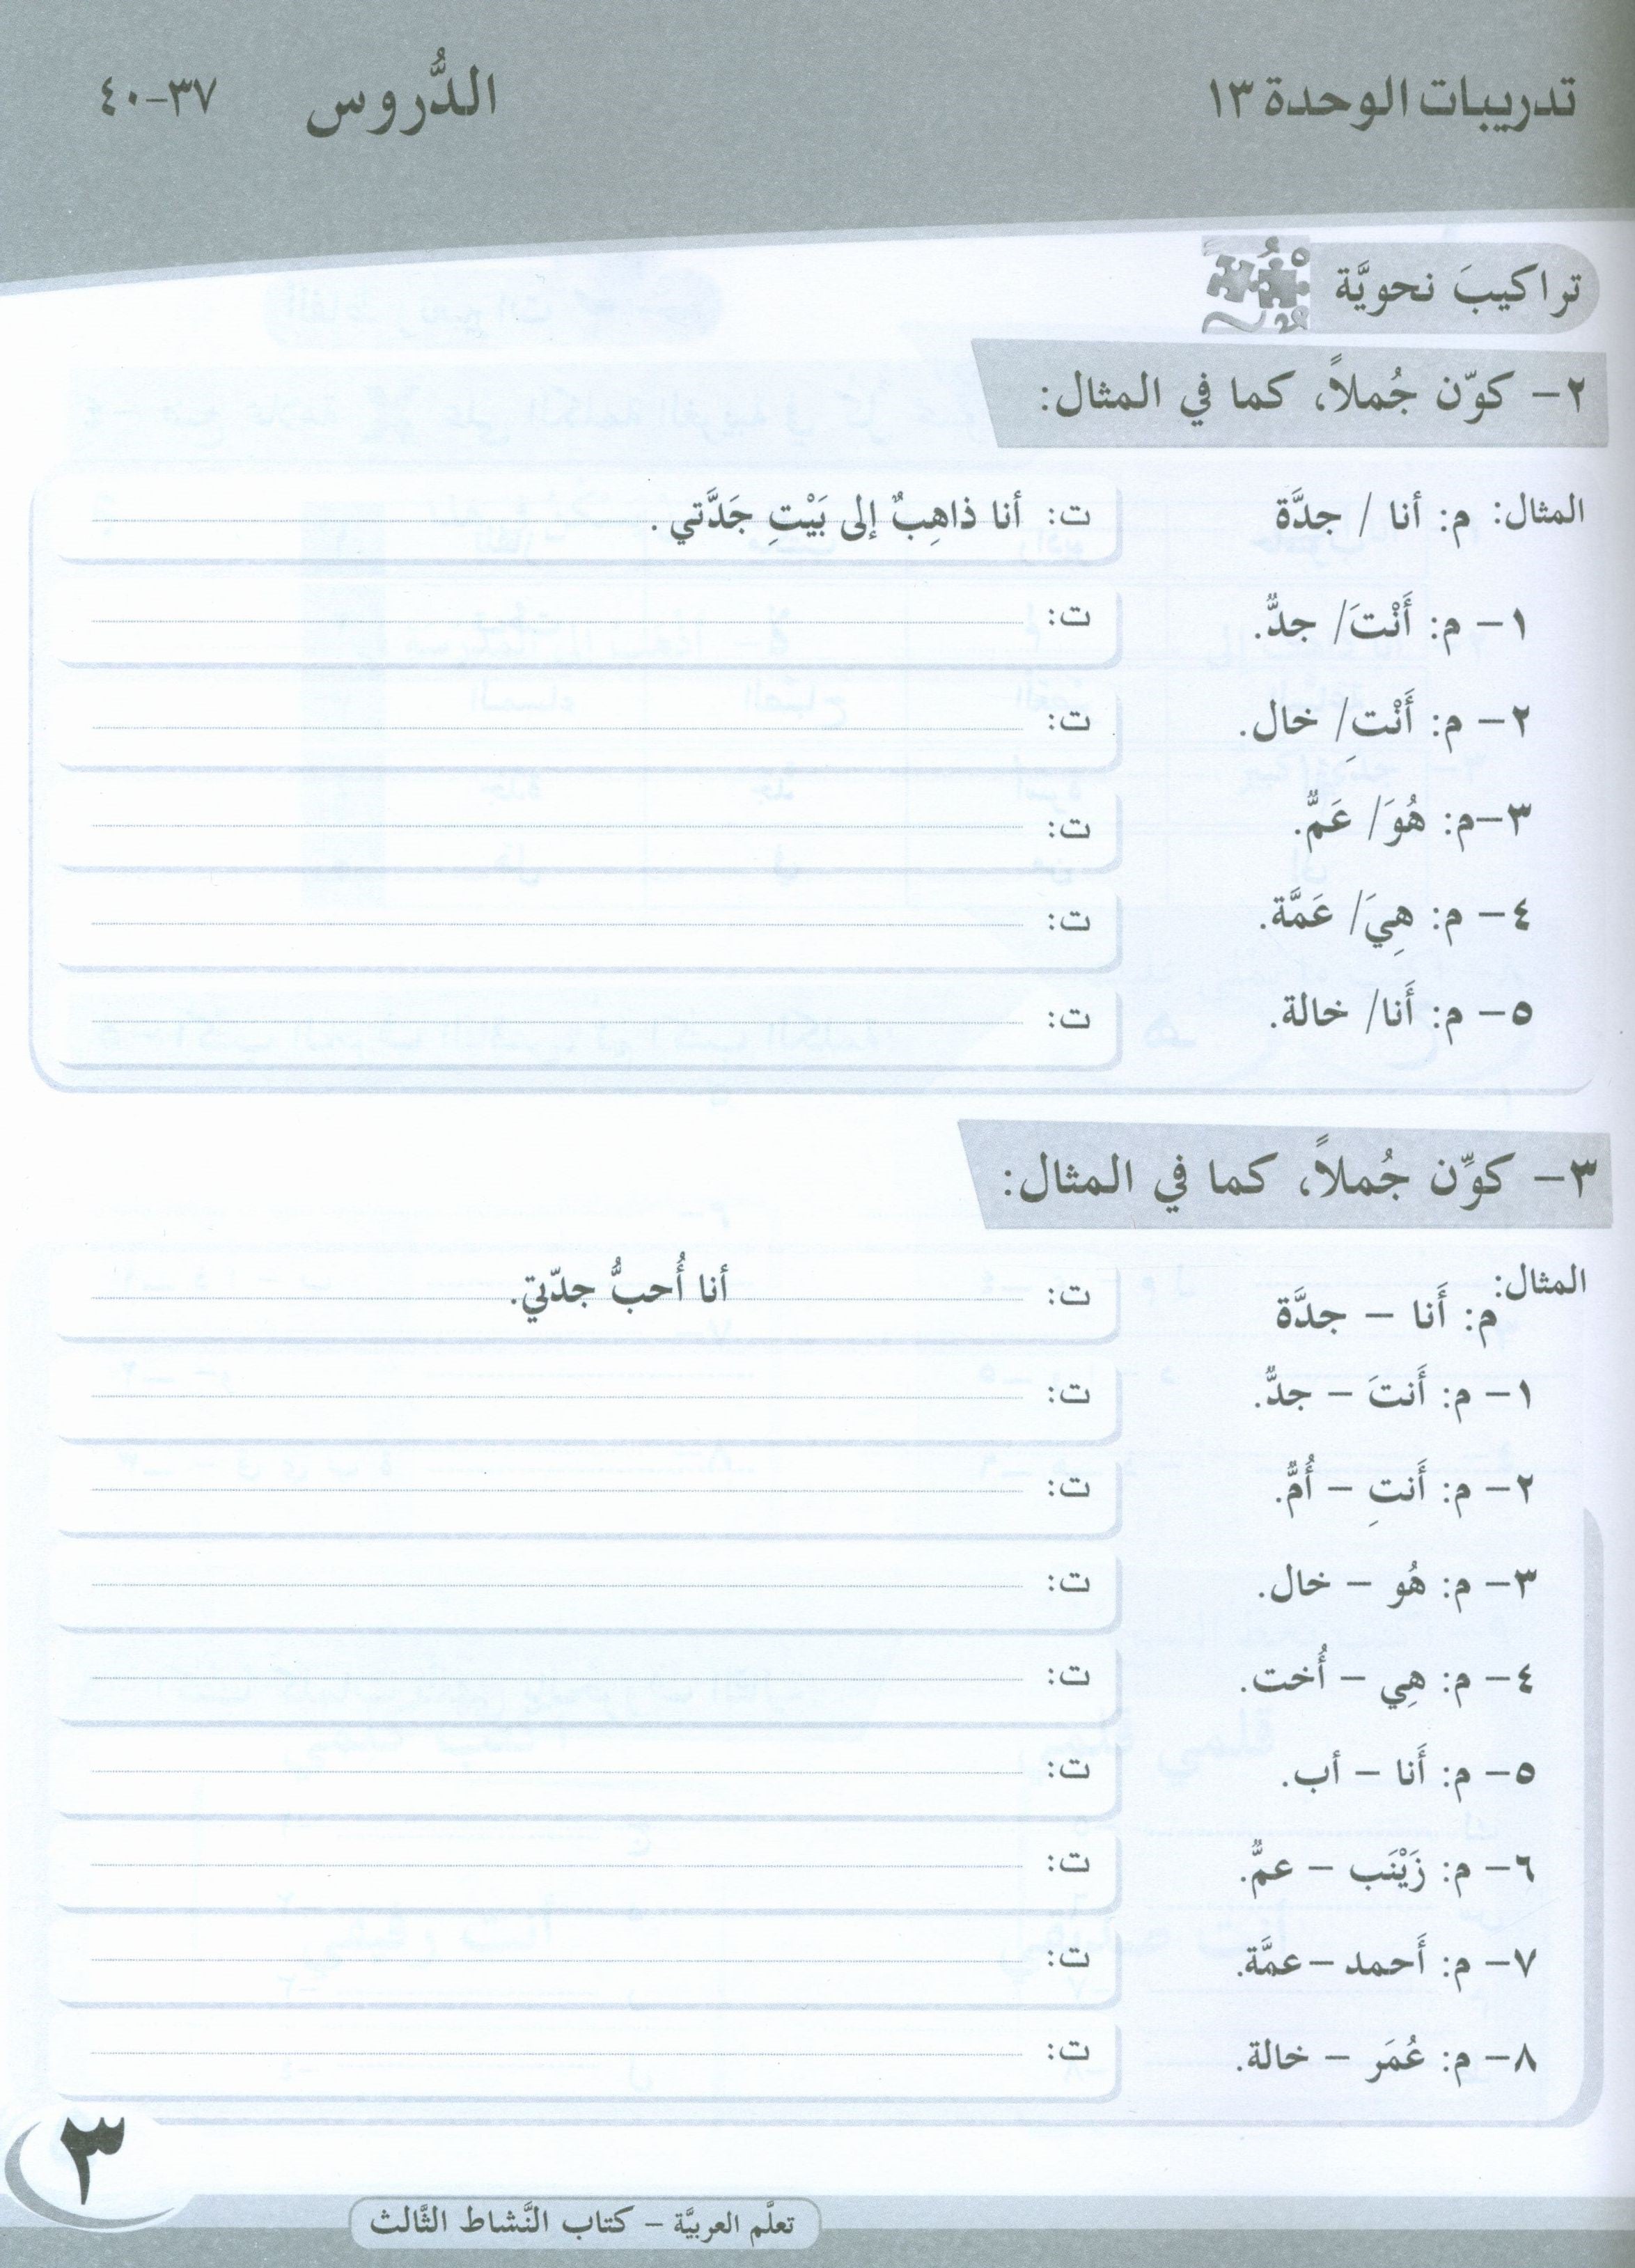 تدريبات الوحدة ١٣ الدُّروس ٣٧-٤٠
تراكيبَ نحويَّة
٢- كوّن جُملاً، كما في المثال:
المثال: م: أنا / جدَّة ت: أنا ذاهِبٌ إلى بَيْتِ جَدَّتي .
١- م: أَنْتَ/ جدُّ. ت:
٢- م: أَنْتِ/ خال. ت:
٣-م: هُوَ/ عَمُّ. ت:
٤- م: هِيَ/ عَمَّة. ت:
٥- م: أَنا/ خالة. ت:
٣- كوِّن جُملاً، كما في المثال:
المثال: م: أَنا - جدَّة ت: أنا أُحبُّ جدّتي.
١- م: أَنتَ - جدُّ. ت:
٢- م: أَنتِ - أُمُّ. ت:
٣- م: هُو - خال. ت:
٤- م: هِي - أُخت. ت:
٥- م: أَنا - أب. ت:
٦- م: زَيْنَب - عمُّ. ت:
٧- م: أَحمد -عمَّة. ت:
٨- م: عُمَر - خالة. ت:
٣
تعلَّم العربيَّة - كتاب النَّشاط الثَّالث